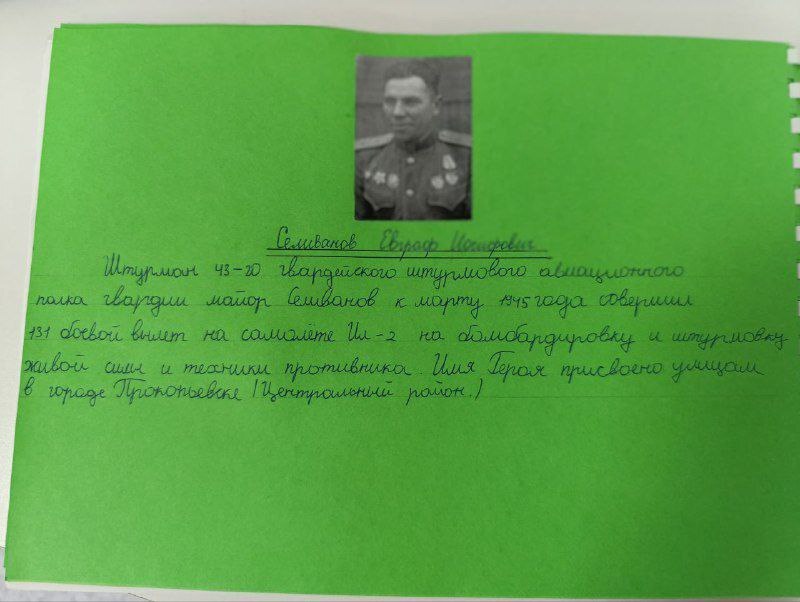 Селиванов Евграф Иосифович
Штурман 43-го гвардейского штурмового авиационного
полка гвардии майор Селиванов к марту 1945 года совершил
131 боевой вылет на самолёте Ил-2 на бомбардировку и штурмовку
живой силы и техники противника. Имя Героя присвоено улицам
в городе Прокопьевске (Центральный район.)